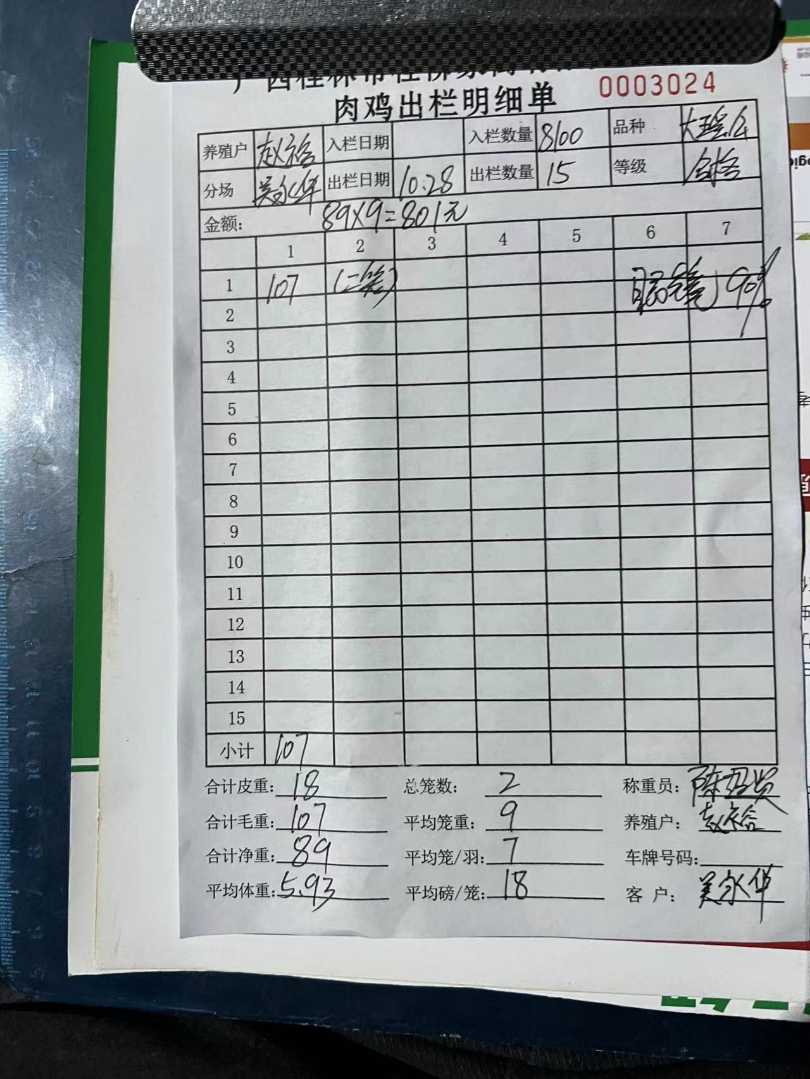 肉鸡出栏明细单 0003024
养殖户 赵裕 入栏日期 入栏数量 8100 品种
分场 吴永华 出栏日期 10.28 出栏数量 15 等级 合格
金额: 89×9=801元
1 2 3 4 5 6 7
1 107 (二笼) 90%
2
3
4
5
6
7
8
9
10
11
12
13
14
15
小计 107
合计皮重: 18 总笼数: 2 称重员:
合计毛重: 107 平均笼重: 9 养殖户: 赵裕
合计净重: 89 平均笼/羽: 7 车牌号码:
平均体重: 5.93 平均磅/笼: 18 客户: 吴永华